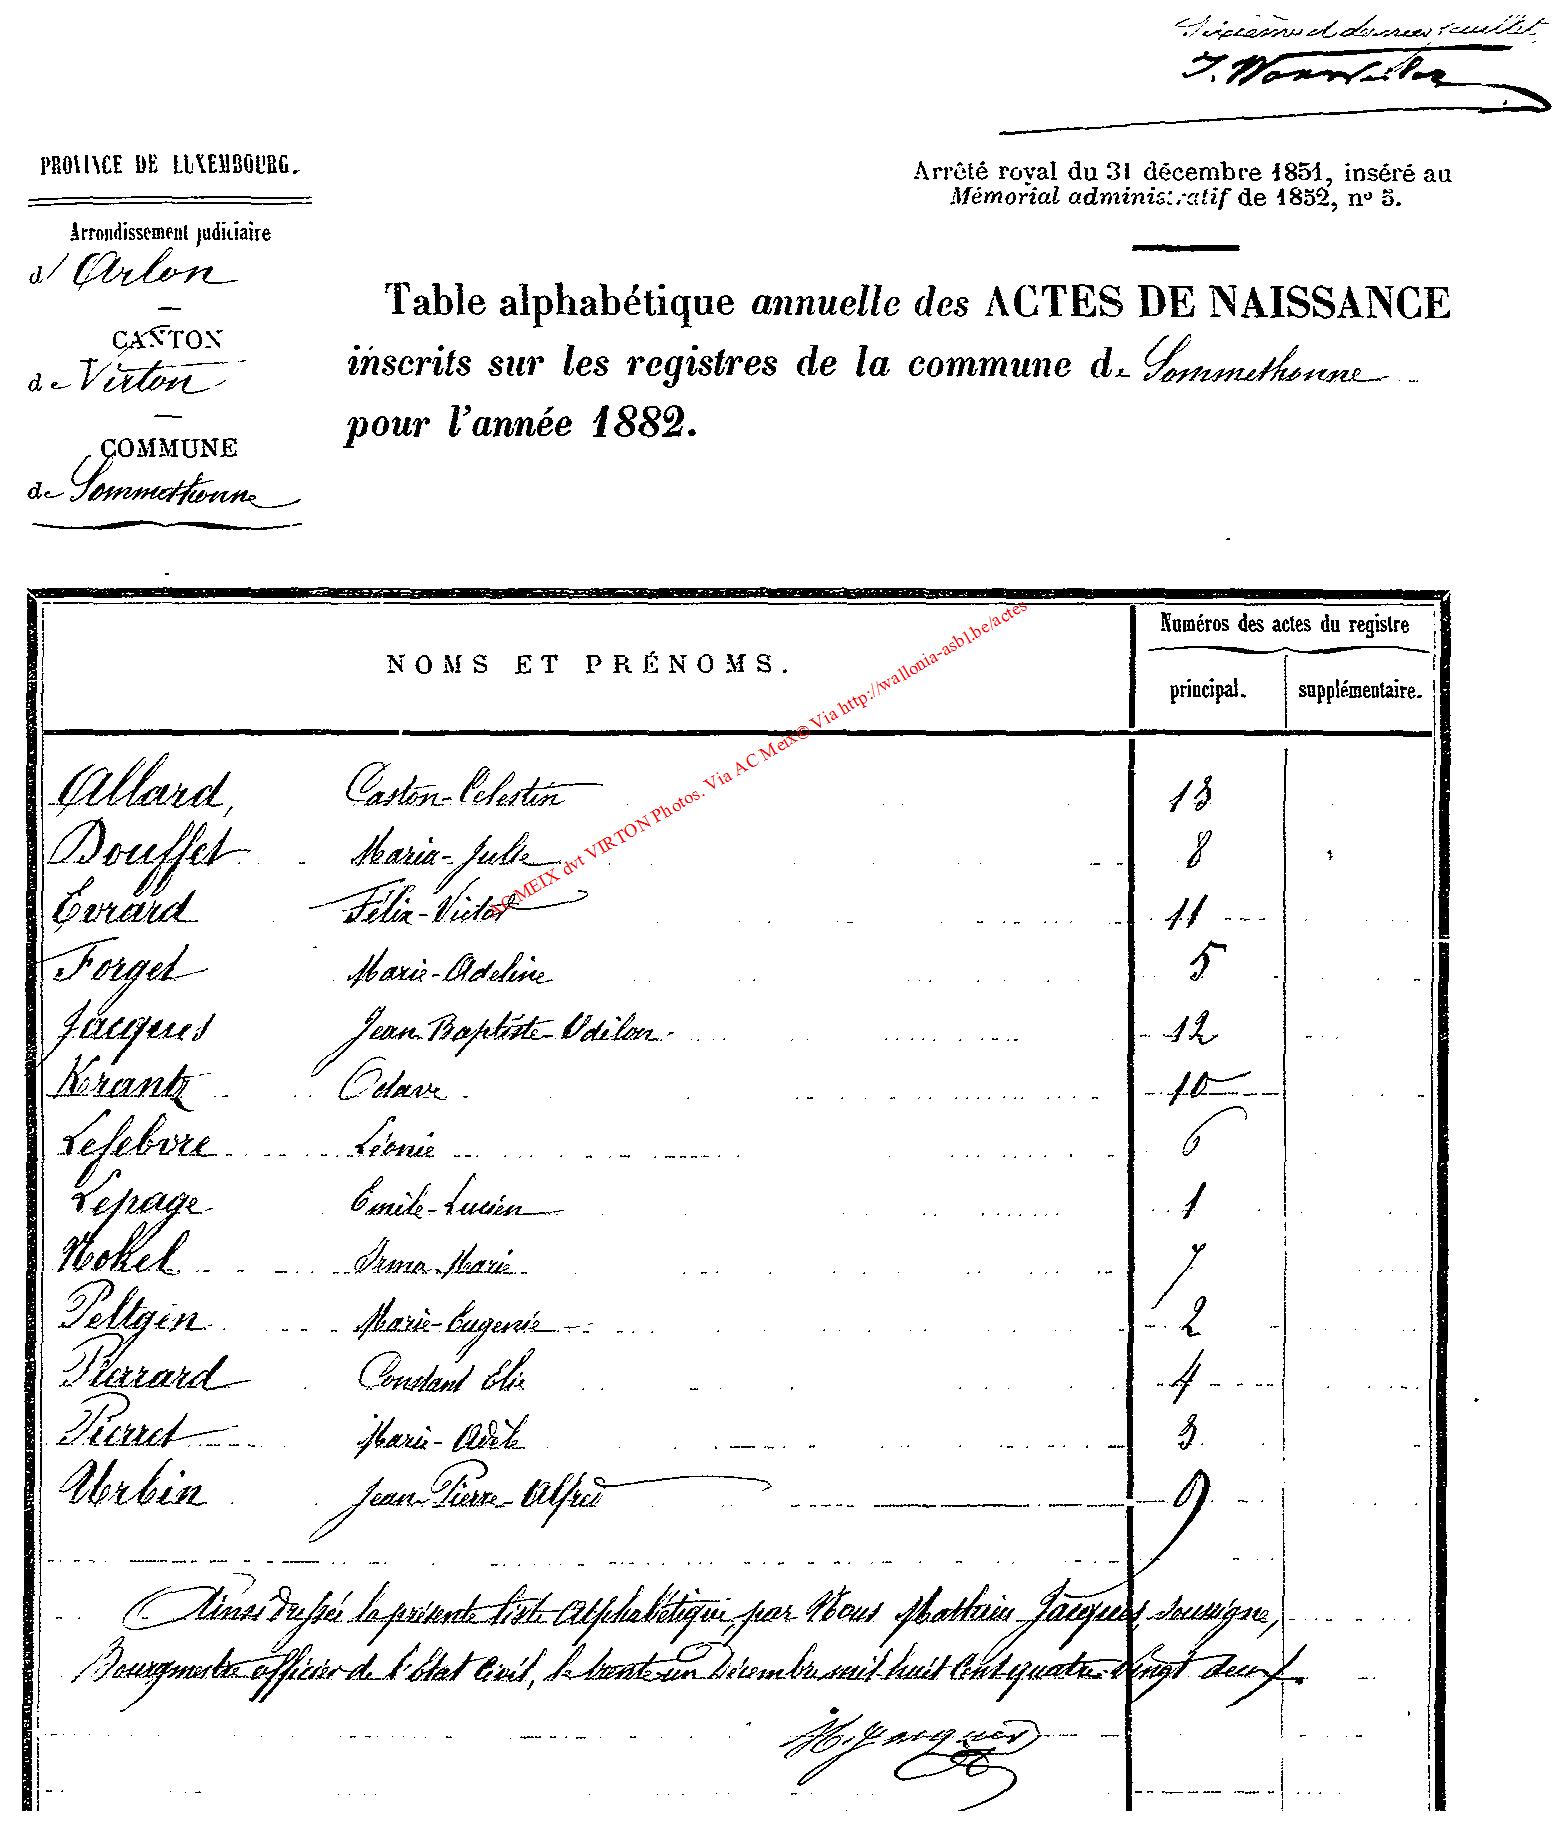 Sixième et dernier feuillet
PROVINCE DE LUXEMBOURG.
Arrêté royal du 31 décembre 1851, inséré au
Mémorial administratif de 1852, nº 5.
Arrondissement judiciaire
d'Arlon
CANTON
de Virton
COMMUNE
de Sommethonne
Table alphabétique annuelle des ACTES DE NAISSANCE
inscrits sur les registres de la commune de Sommethonne
pour l'année 1882.
NOMS ET PRÉNOMS.
Numéros des actes du registre
principal. supplémentaire.
AC MEIX dvt VIRTON Photos. Via AC Meix© Via http://wallonia-asbl.be/actes
Allard, Gaston-Célestin 13
Bouffet Maria-Julie 8
Evrard Félix-Victor 11
Forget Marie-Adeline 5
Jacques Jean-Baptiste-Odilon 12
Krantz Octave 10
Lefebvre Léonie 6
Lepage Emile-Lucien 1
Nokel Irma-Marie 7
Peltgen Marie-Eugénie 2
Pierrard Constant Elie 4
Pierret Marie-Adèle 3
Urbin Jean-Pierre-Alfred 9
Ainsi dressée la présente liste Alphabétique, par Nous Mathieu Jacques, soussigné,
Bourgmestre officier de l'Etat Civil, le trente-un Décembre mil huit Cent quatre-vingt deux.
M. Jacques